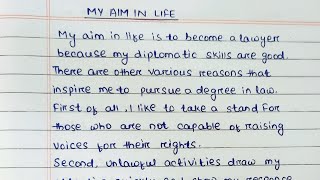 MY AIM IN LIFE
My aim in life is to become a lawyer
because my diplomatic skills are good.
There are other various reasons that
inspire me to pursue a degree in law.
First of all, I like to take a stand for
those who are not capable of raising
voices for their rights.
Second, unlawful activities draw my